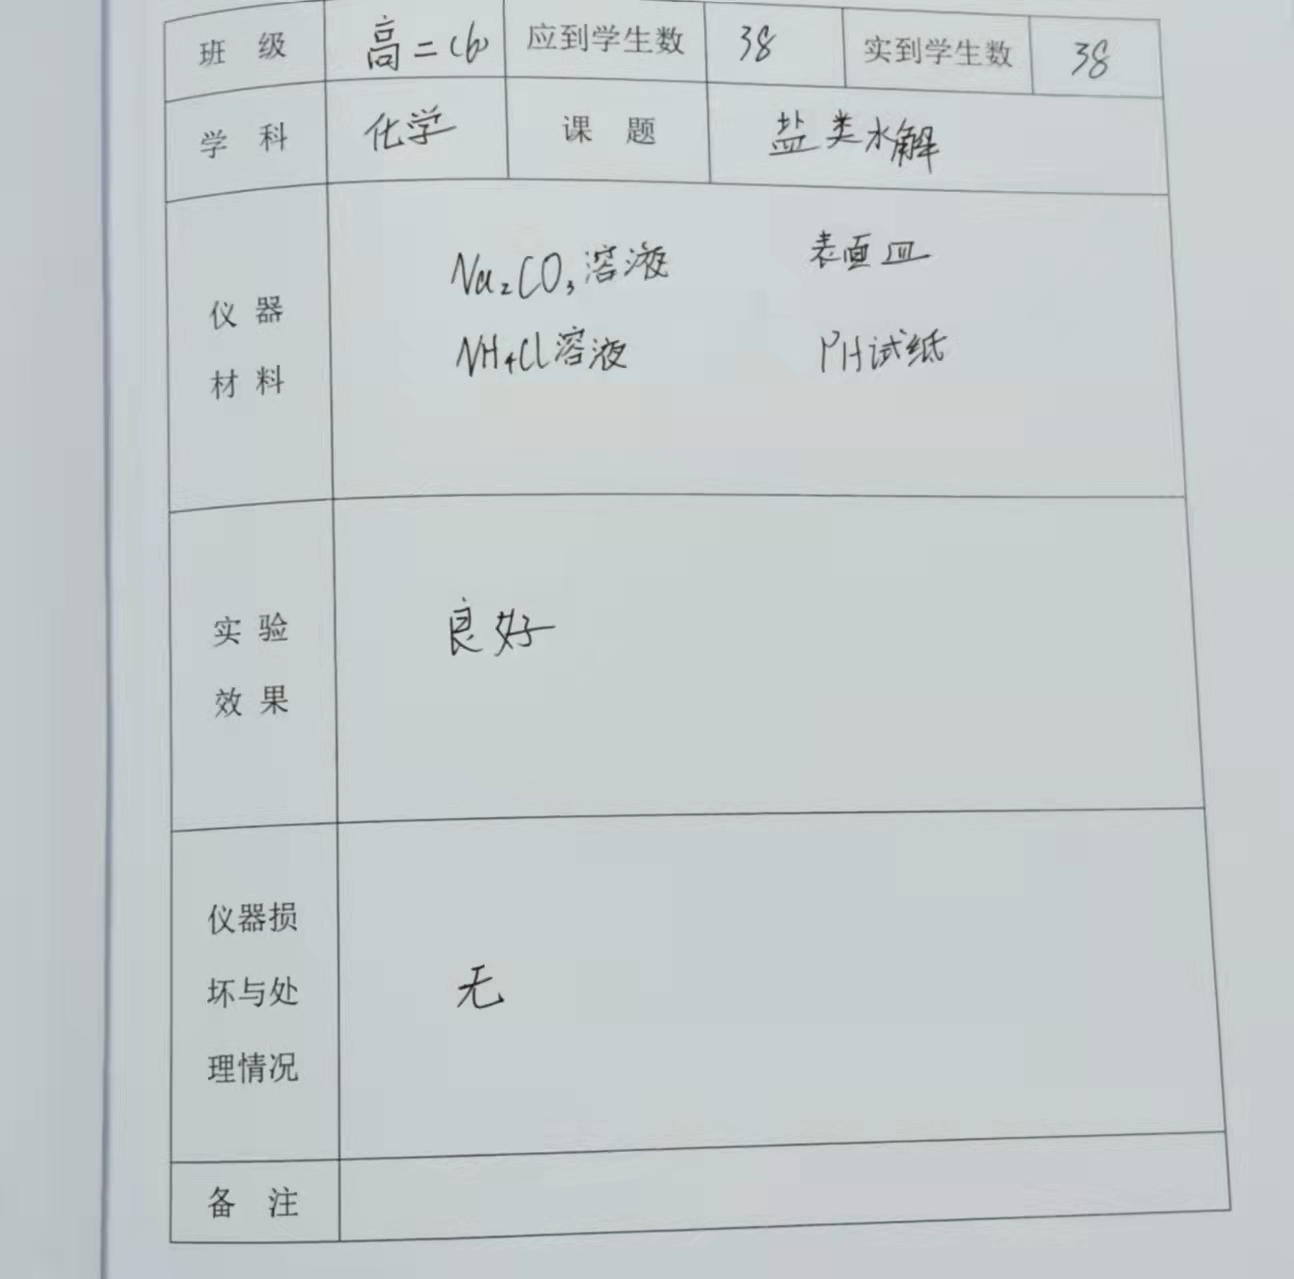 班 级 高二(6) 应到学生数 38 实到学生数 38
学 科 化学 课 题 盐类水解
仪 器
材 料
Na₂CO₃溶液 表面皿
NH₄Cl溶液 PH试纸
实 验
效 果
良好
仪器损
坏与处
理情况
无
备 注